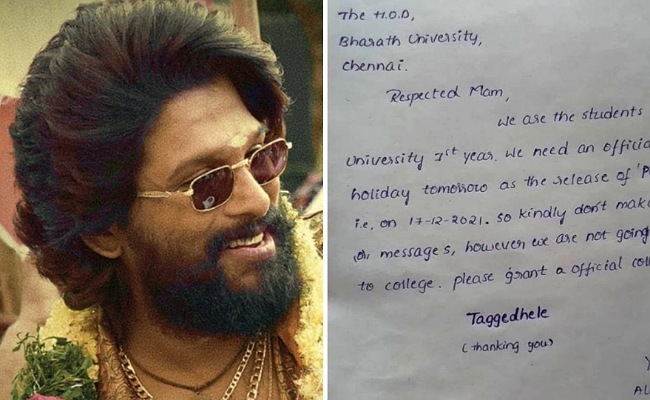 The H.O.D,
Bharath University,
Chennai.
Respected Mam,
We are the students
University 1st year. We need an official
holiday tomorrow as the release of 'P
i.e. on 17-12-2021. So kindly don't make
or messages, however we are not going
to college. please grant a official col
Taggedhele
(thanking you)
Y
AL